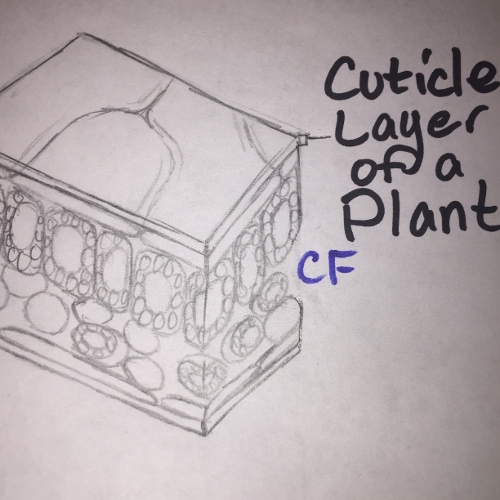 Cuticle
Layer
of a
Plant
CF